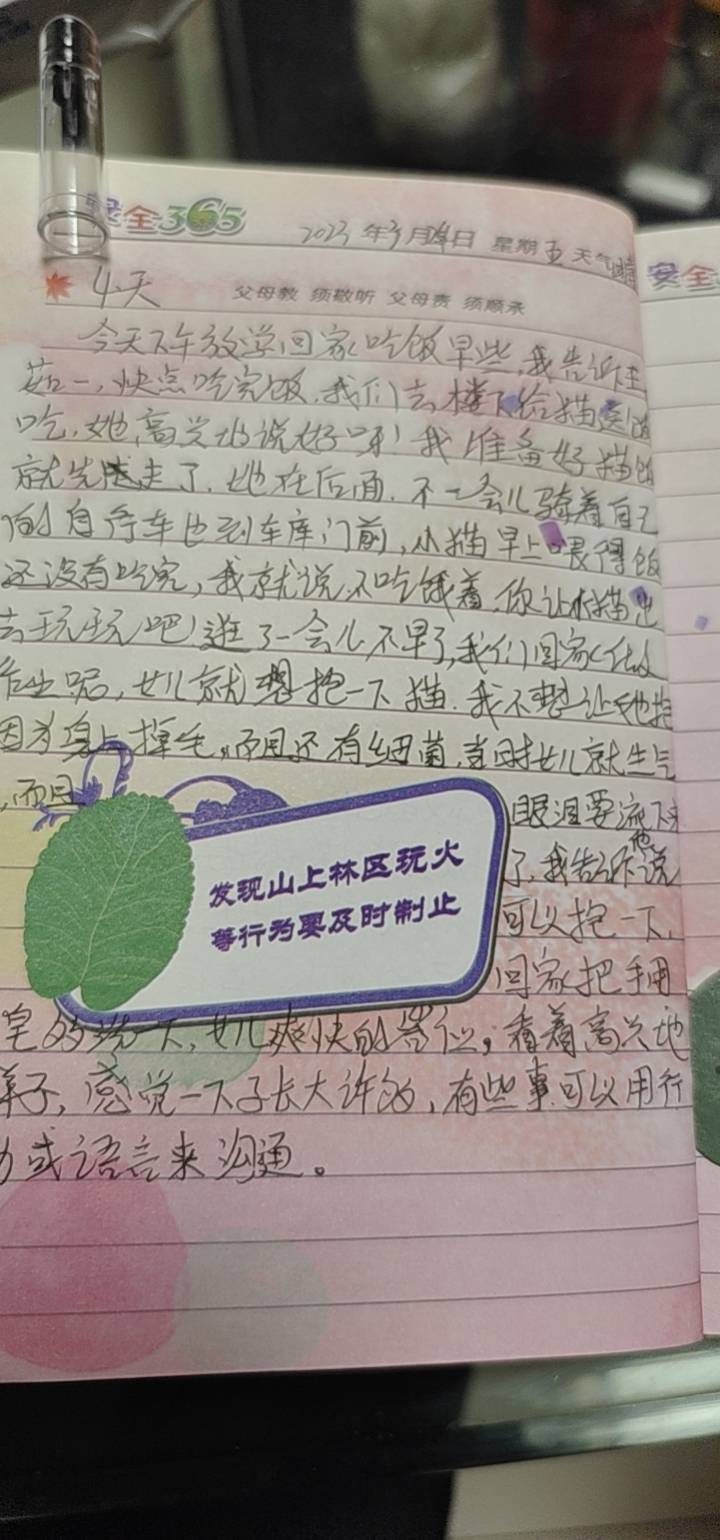 安全365 2023年3月24日 星期五 天气晴 安全
4天 父母教 须敬听 父母责 须顺承
今天下午放学回家吃饭早些,我告诉王
茹一,快点吃完饭,我们去楼下给猫
吃,她高兴地说好呀!我准备好猫饭
就先走了.她在后面.不一会儿骑着自己
的自行车也到车库门前,小猫早上喂得饭
还没有吃完,我就说,不吃饿着,你让小猫出
去玩玩吧!逛了一会儿不早了,我们回家
作业呢,女儿就想抱一下猫.我不想让她抱
因为身上掉毛,而且还有细菌,当时女儿就生气
,而且 眼泪要流下来
发现山上林区玩火 了,我告诉他说
等行为要及时制止 可以抱一下,
回家把手用
皂多洗一下,女儿爽快的答应,看着高兴地
,感觉一下子长大许多,有些事可以用行
或语言来沟通。